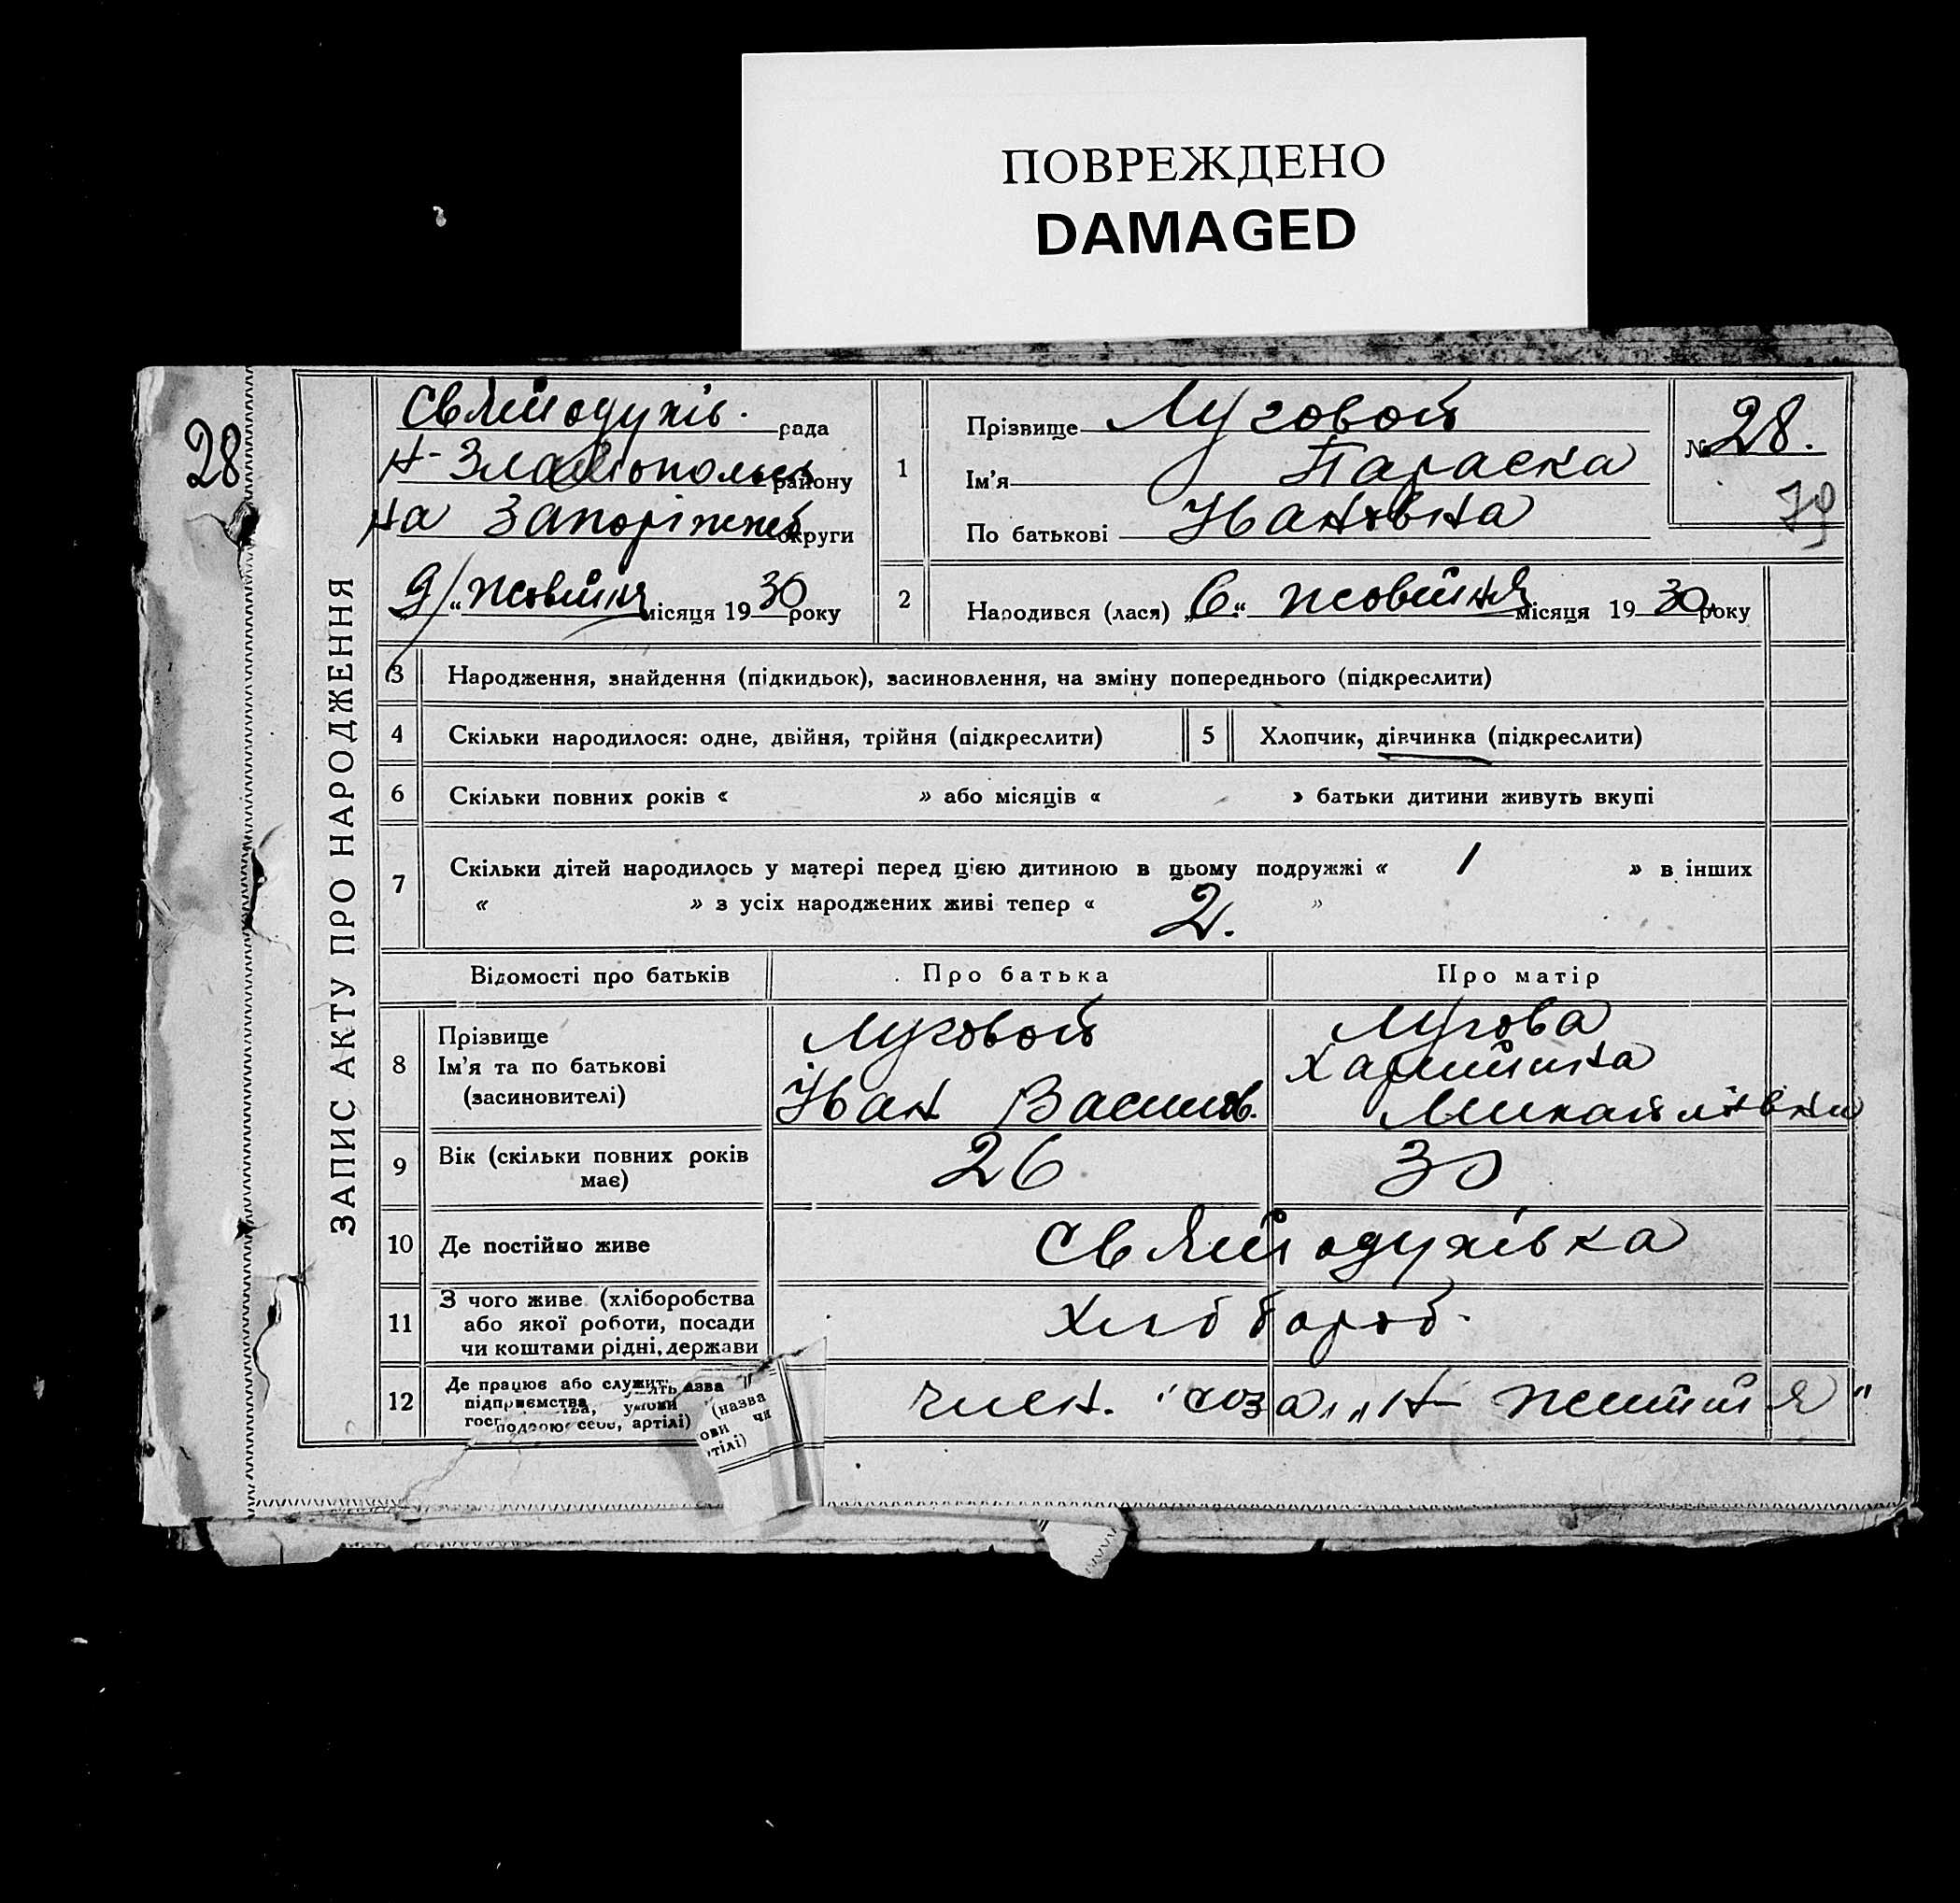 ПОВРЕЖДЕНО
DAMAGED
28
ЗАПИС АКТУ ПРО НАРОДЖЕННЯ
Святодухів. рада
Н-Златопольськ району
на Запоріжж округи
9/ „ жовтня місяця 1930 року
1
Прізвище Луговой
Ім'я Параска
По батькові Ивановна
№ 28.
79
2
Народився (лася) „6“ жовтня місяця 1930 року
3 Народження, знайдення (підкидьок), засиновлення, на зміну попереднього (підкреслити)
4 Скільки народилося: одне, двійня, трійня (підкреслити)
5 Хлопчик, дівчинка (підкреслити)
6 Скільки повних років « » або місяців « » батьки дитини живуть вкупі
7 Скільки дітей народилось у матері перед цією дитиною в цьому подружжі « 1 » в інших
« » з усіх народжених живі тепер « 2. »
Відомості про батьків Про батька Про матір
8
Прізвище
Ім'я та по батькові
(засиновителі)
Луговой
Іван Васильов.
Лугова
Харитина
Михайловна
9
Вік (скільки повних років
має)
26 30
10 Де постійно живе Святодухівка
11
З чого живе (хліборобства
або якої роботи, посади
чи коштами рідні, держави
Хлібороб.
12
Де працює або служить
підприємства, умови
подвою себе, артілі)
(назва
ови чи
тілі)
член. соза „Н-життття“